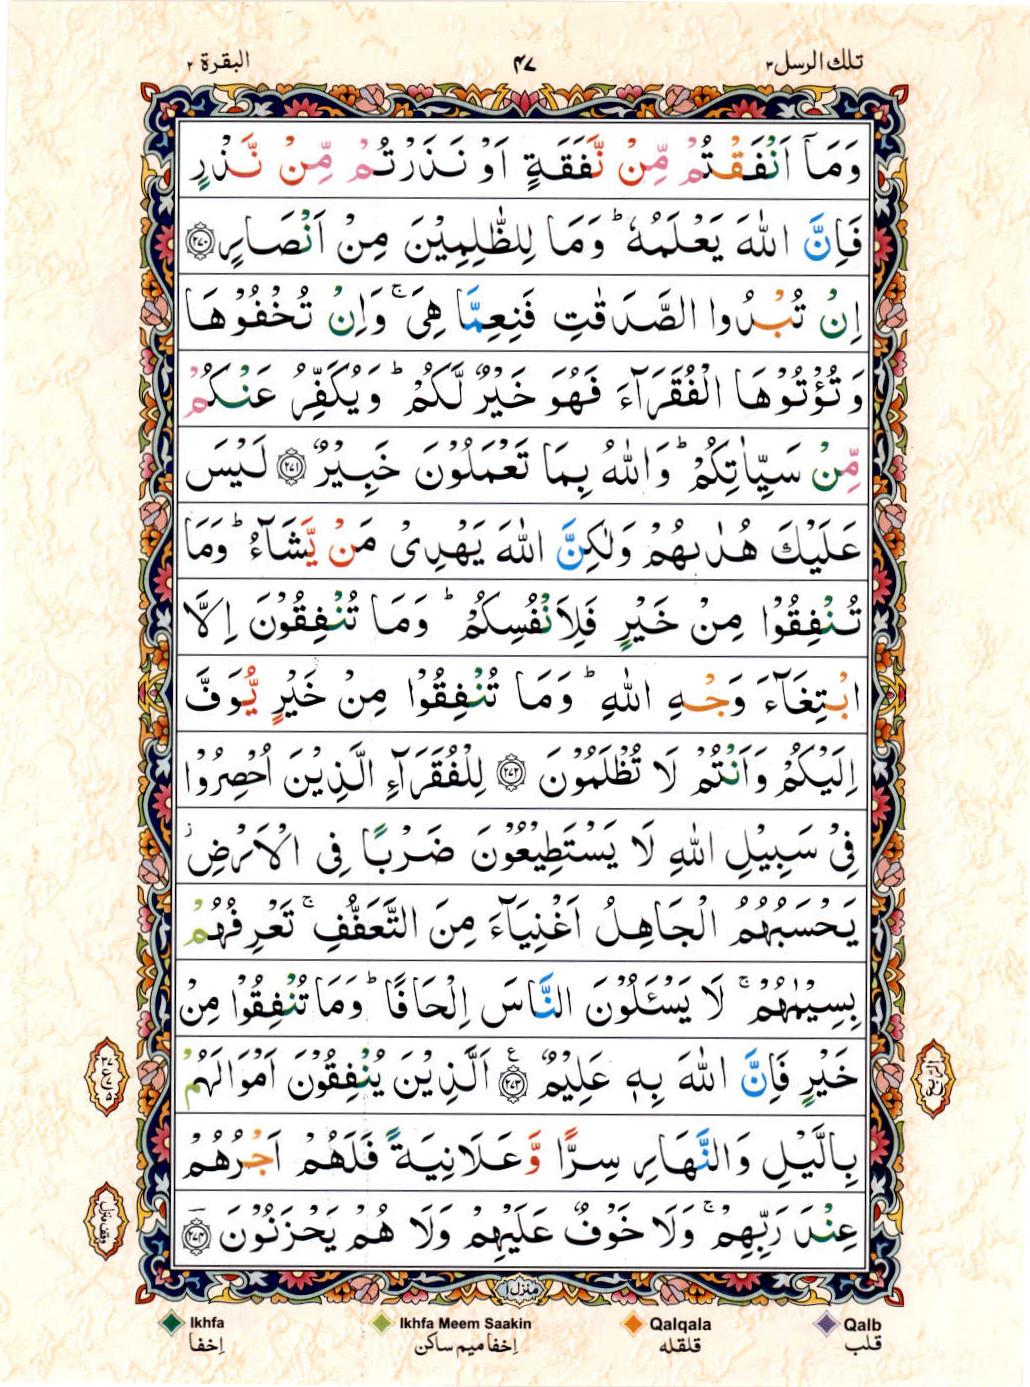 تلك الرسل ٣ ۴۷ البقرة ٢
وَمَآ اَنْفَقْتُمْ مِّنْ نَّفَقَةٍ اَوْ نَذَرْتُمْ مِّنْ نَّذْرٍ
فَاِنَّ اللّٰهَ يَعْلَمُهٗ ؕ وَمَا لِلظّٰلِمِيْنَ مِنْ اَنْصَارٍ ﴿۲۷۰﴾
اِنْ تُبْدُوا الصَّدَقٰتِ فَنِعِمَّا هِيَ ۚ وَاِنْ تُخْفُوْهَا
وَتُؤْتُوْهَا الْفُقَرَآءَ فَهُوَ خَيْرٌ لَّكُمْ ؕ وَيُكَفِّرُ عَنْكُمْ
مِّنْ سَيِّاٰتِكُمْ ؕ وَاللّٰهُ بِمَا تَعْمَلُوْنَ خَبِيْرٌ ﴿۲۷۱﴾ لَيْسَ
عَلَيْكَ هُدٰىهُمْ وَلٰكِنَّ اللّٰهَ يَهْدِىْ مَنْ يَّشَآءُ ؕ وَمَا
تُنْفِقُوْا مِنْ خَيْرٍ فَلِاَنْفُسِكُمْ ؕ وَمَا تُنْفِقُوْنَ اِلَّا
ابْتِغَآءَ وَجْهِ اللّٰهِ ؕ وَمَا تُنْفِقُوْا مِنْ خَيْرٍ يُّوَفَّ
اِلَيْكُمْ وَاَنْتُمْ لَا تُظْلَمُوْنَ ﴿۲۷۲﴾ لِلْفُقَرَآءِ الَّذِيْنَ اُحْصِرُوْا
فِىْ سَبِيْلِ اللّٰهِ لَا يَسْتَطِيْعُوْنَ ضَرْبًا فِى الْاَرْضِ ؗ
يَحْسَبُهُمُ الْجَاهِلُ اَغْنِيَآءَ مِنَ التَّعَفُّفِ ۚ تَعْرِفُهُمْ
بِسِيْمٰهُمْ ۚ لَا يَسْـَٔلُوْنَ النَّاسَ اِلْحَافًا ؕ وَمَا تُنْفِقُوْا مِنْ
خَيْرٍ فَاِنَّ اللّٰهَ بِهٖ عَلِيْمٌ ﴿۲۷۳﴾ ع اَلَّذِيْنَ يُنْفِقُوْنَ اَمْوَالَهُمْ
بِالَّيْلِ وَالنَّهَارِ سِرًّا وَّعَلَانِيَةً فَلَهُمْ اَجْرُهُمْ
عِنْدَ رَبِّهِمْ ۚ وَلَا خَوْفٌ عَلَيْهِمْ وَلَا هُمْ يَحْزَنُوْنَ ﴿۲۷۴﴾
وقف منزل
منزل ١
Ikhfa Ikhfa Meem Saakin Qalqala Qalb
اِخفا اِخفا ميم ساكن قلقله قلب